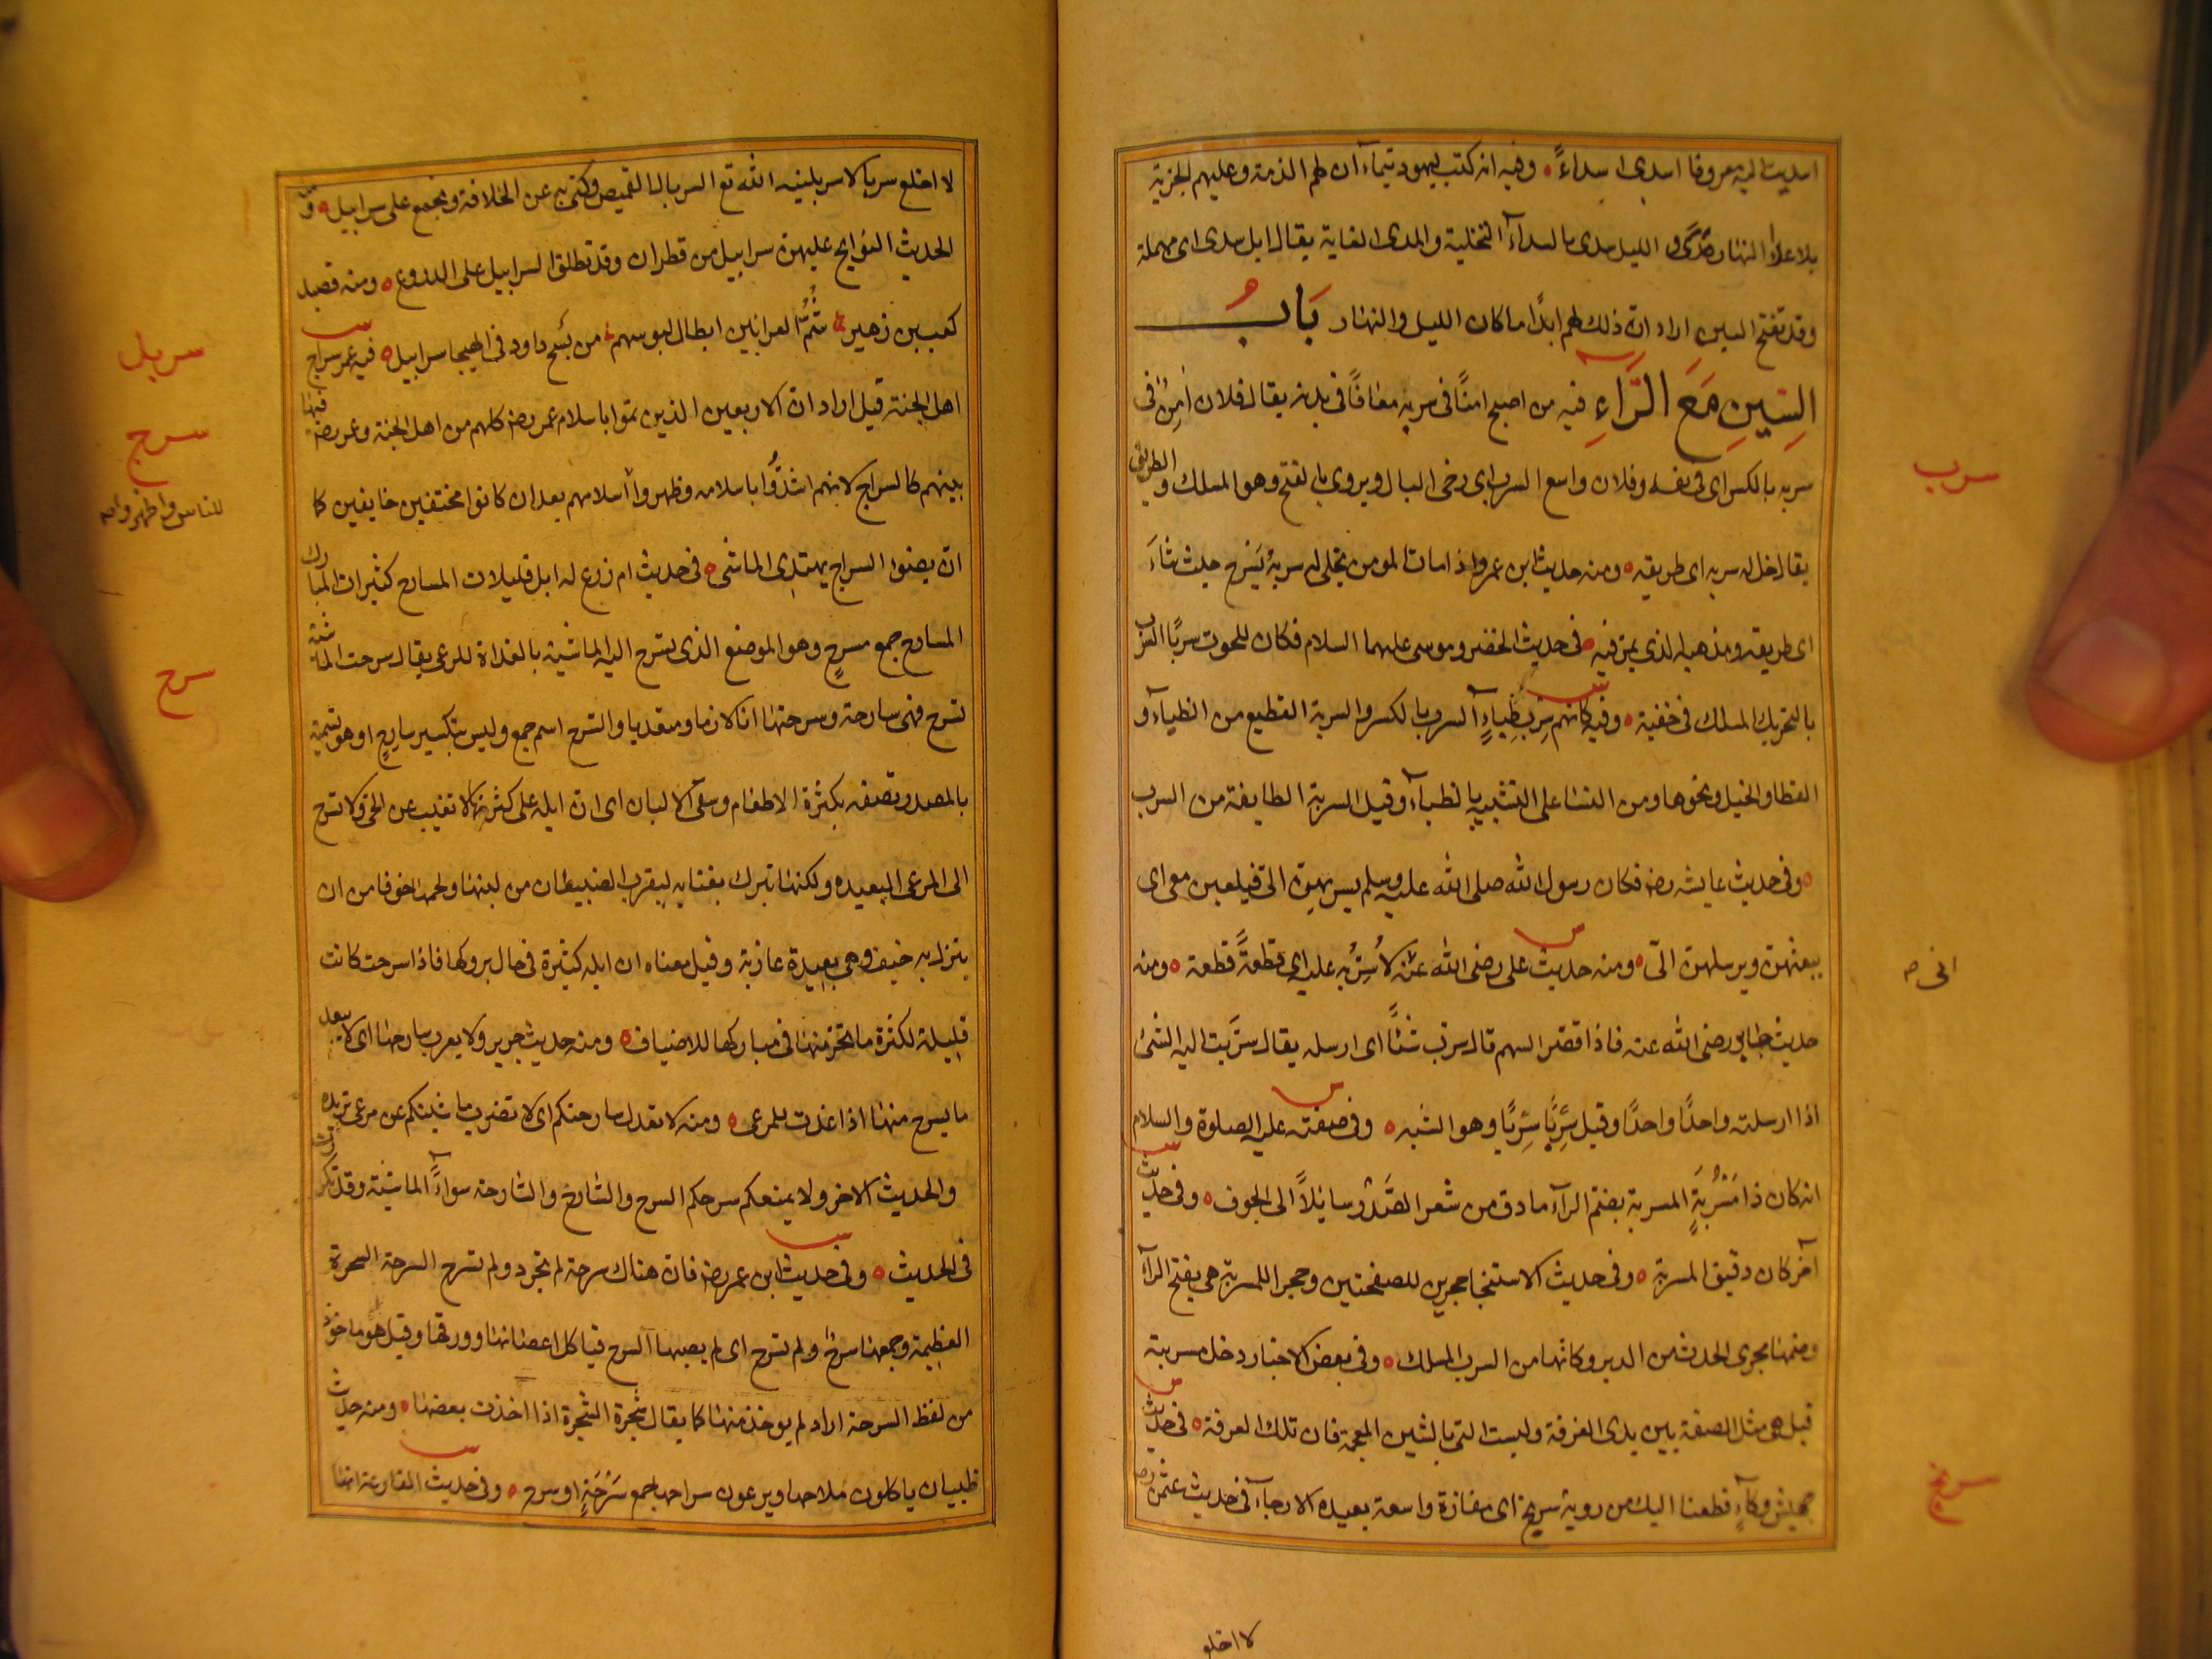 اسديت اليه معروفا اسدى اسداءً ۵ وفيه انه كتب ليهود تيماء ان لهم الذمة وعليهم الجزية
بلا عداء النهار مدى والليل سدى السداء التخلية والمدى الغاية يقال ابل سدى اى مهملة
وقد تفتح السين اراد ان ذلك لهم ابدًا ما كان الليل والنهار بَابُ
السِّينِ مَعَ الرَّاءِ فيه من اصبح امنًا فى سربه معافًا فى بدنه يقال فلان آمِنٌ فى
سرب
سربه بالكسر اى فى نفسه وفلان واسع السرب اى رخى البال ويروى بالفتح وهو المسلك والطريق
يقال خل له سربه اى طريقه ۵ ومنه حديث ابن عمرو اذا مات المومن يخلى له سربهُ يَسْرح حيث شاءَ
اى طريقه ومذهبه الذى يمرّ فيه ۵ فى حديث الخضر وموسى عليهما السلام فكان للحوت سربًا السَّرَب
بالتحريك المسلك فى خفية ۵ وفيه كانهم سِرْبُ ظِباءٍ السرب بالكسر والسربة القطيع من الظباء و
القطا والخيل ونحوها ومن النسا على التشبيه بالظباء وقيل السربة الطايفة من السرب
۵ وفى حديث عايشه رضه فكان رسول الله صلى الله عليه وسلم يسربهن الىّ فيلعبن معى اى
يبعثهن ويرسلهن الىّ ۵ ومنه حديث على رضى الله عنه لاُسرِّبه عليه اى قطعةً قطعة ۵ ومنه
انى صه
حديث جابر رضى الله عنه فاذا قصّر السهم قال سرّب شئًا اى ارسله يقال سرَّبت اليه الشئ
اذا ارسلته واحدًا واحدًا وقيل سِرْبًا سِرْبًا وهو الشبه ۵ وفى صفته عليه الصلوة والسلام
انه كان ذا مَسْرُبَةٍ المسربة بضم الراء ما دق من شعر الصَّدْر سايلًا الى الجوف ۵ وفى حديث
آخر كان دقيق المسربة ۵ وفى حديث الاستنجا حجرين للصفحتين وحجرا للمسربة هى بفتح الراء
وضمها مجرى الحدث من الدبر وكانها من السرب المسلك ۵ وفى بعض الاخبار دخل مسربة
قيل هى مثل الصفة بين يدى الغرفة وليست التى بالشين المعجمة فان تلك الغرفة ۵ فى حديث
سربخ
جهيش وكآءٍ قطعنا اليك من دوية سربخ اى مفازة واسعة بعيده الارجاء فى حديث عثمن رضه
لا اخلع
لا اخلع سربالا سربلنيه الله تع السربال القميص وكنى به عن الخلافة ويجمع على سرابيل ۵ ومنه
الحديث النوايح عليهن سرابيل من قطران وقد تطلق السرابيل على الدروع ۵ ومنه قصيد
كعب بن زهير شُمُّ العرانين ابطال لبوسهم من نسج داود فى الهيجا سرابيل ۵ فيه عمر سراج
سربل
اهل الجنة قيل اراد ان الاربعين الذين تموا باسلام عمر رضه كلهم من اهل الجنة وعمر رضه فيها
سرج
بينهم كالسراج لانهم اشتدُّوا باسلامه وظهروا اسلامهم بعد ان كانوا مختفين خايفين كا
للناس واظهروا صه
ان بضوء السراج يهتدى الماشى ۵ فى حديث ام زرع له ابل قليلات المسارح كثيرات المبارك
المسارح جمع مسرح وهو الموضع الذى تسرح اليه الماشية بالغداة للرعى يقال سرحت الماشية
سرح
تسرح فهى سارحة وسرحتها انا لازما ومتعديا والسّرح اسم جمع وليس بتكسير سارح او هو تسمية
بالمصدر وتصفه بكثرة الاطعام وسقى الالبان اى ان ابله على كثرتها لا تغيب عن الحى ولا تسرح
الى المرعى البعيده ولكنها تبرك بفنايه ليقرب الضيفان من لبنها ولحمها خوفا من ان
ينزل به ضيف وهى بعيدة عازبة وقيل معناه ان ابله كثيرة فى حال بروكها فاذا سرحت كانت
قليلة لكثرة ما نحر منها فى مباركها للاضياف ۵ ومنه حديث جرير ولا يعزب سارحها اى لا يبعد
ما يسرح منها اذا غدت للمرعى ۵ ومنه لا تعدل سارحتكم اى لا تصرف ماشيتكم عن مرعى تريده
والحديث الاخر ولا يمنعكم سرحكم السرح والسّارح والسّارحة سواءً الماشية وقد تكررت
فى الحديث ۵ وفى حديث ابن عمر رضه فان هناك سرحة لم تجرد ولم تسرح السرحة الشجرة
العظيمة وجمعها سرحٌ ولم تسرح اى لم يصبها السرح فياكل اغصانها وورقها وقيل هو ماخوذ
من لفظ السرحة اراد لم يوخذ منها كما يقال شجرة الشجرة اذا اخذت بعضها ۵ ومنه حديث
ظبيان ياكلون ملاحها ويرعون سراحها جمع سَرْحَةٍ او سرح ۵ وفى حديث الفارعة انها